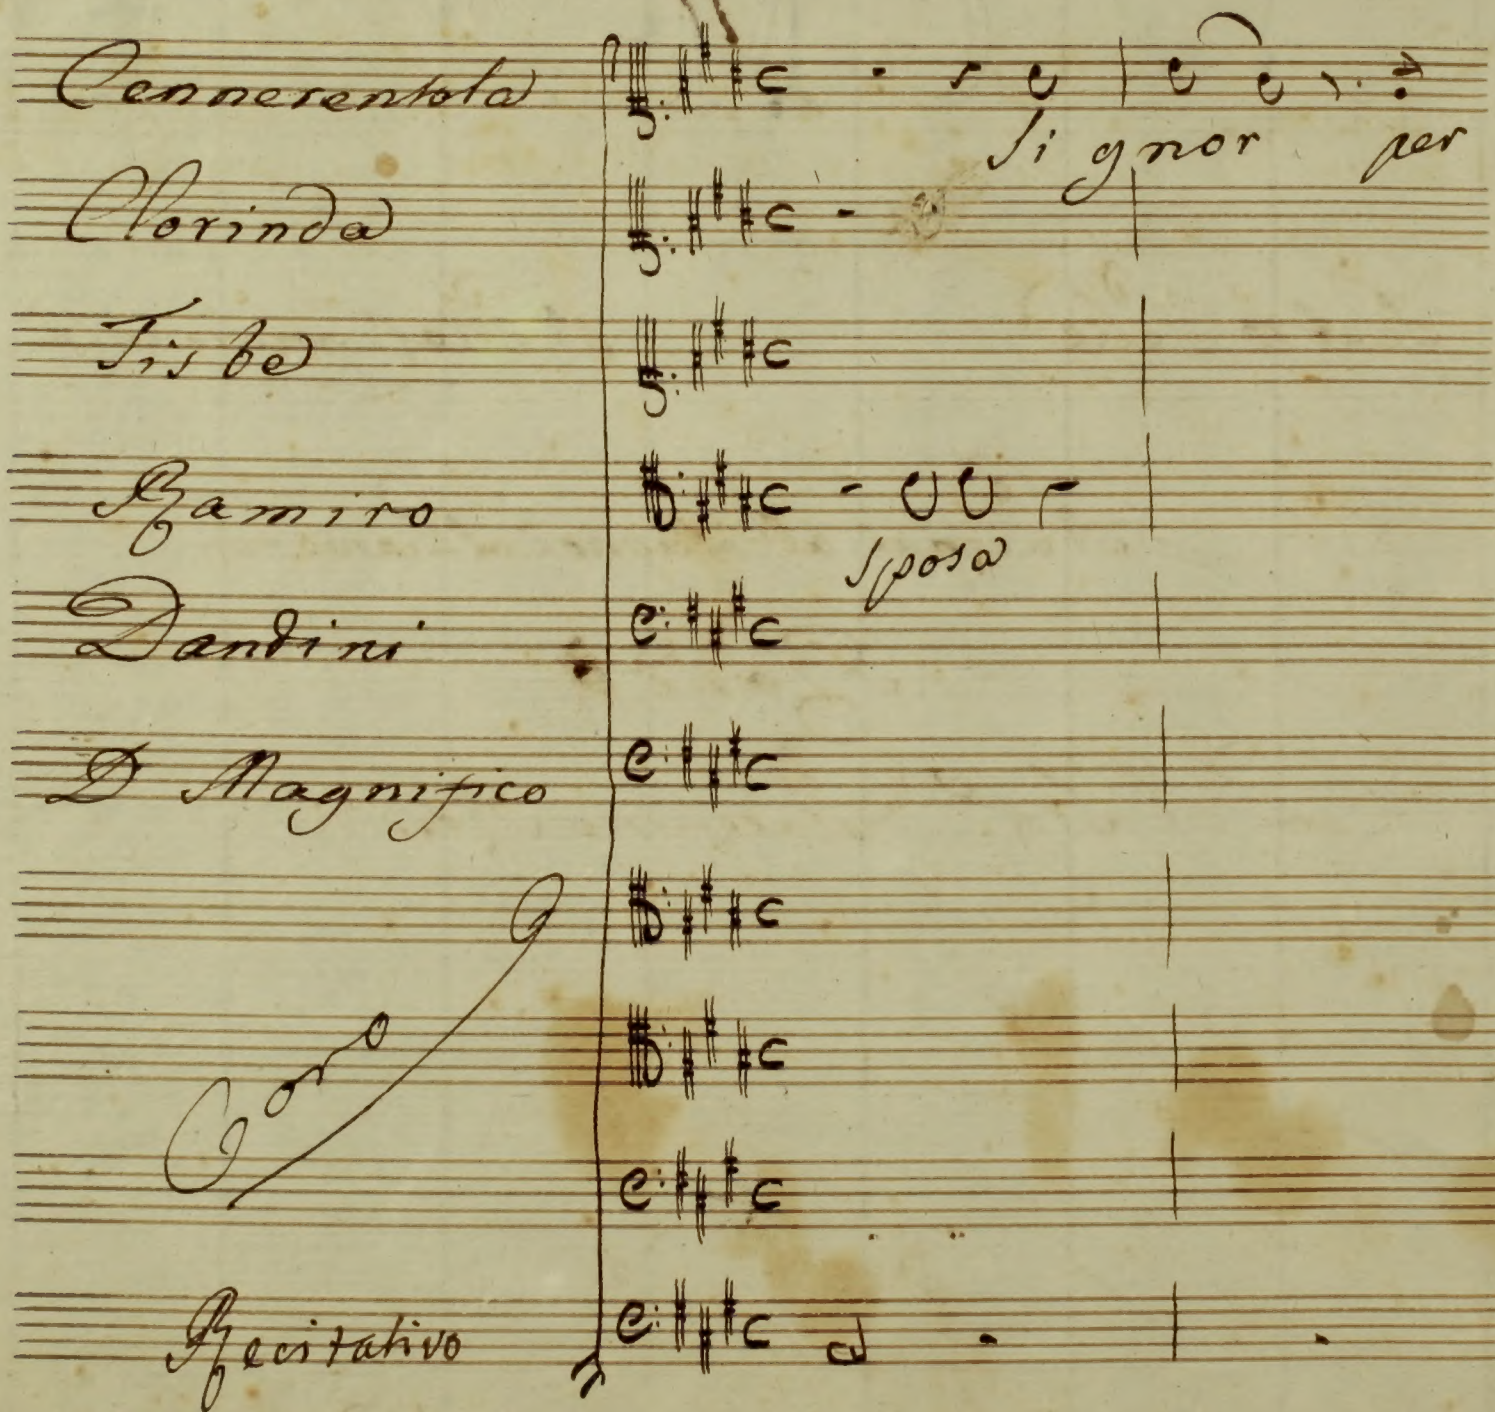 Cennerentola
Si gnor per
Clorinda
Tisbe
Ramiro
Sposa
Dandini
D Magnifico
Coro
Recitativo